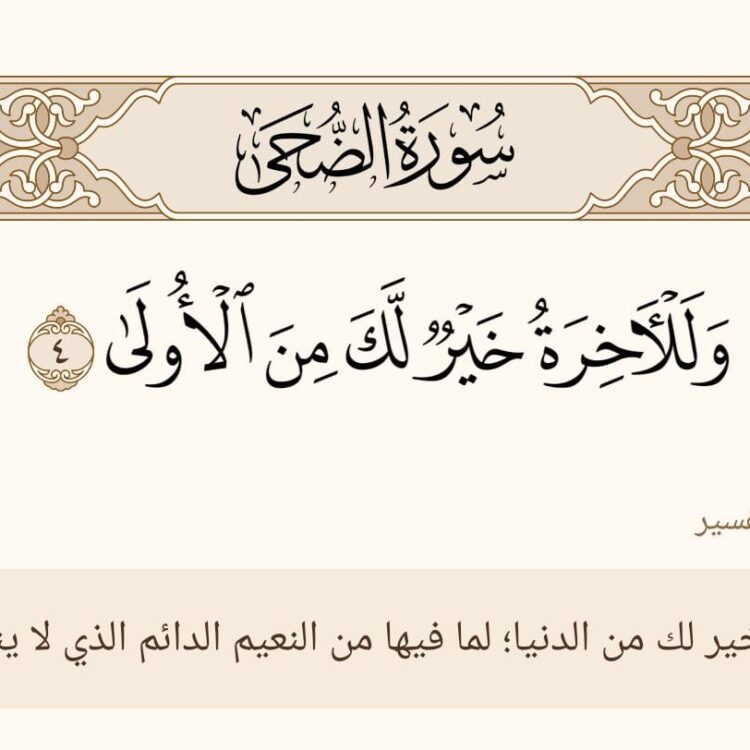 سُورَةُ الضُّحَىٰ
وَلَلْأٓخِرَةُ خَيْرٌ لَّكَ مِنَ ٱلْأُولَىٰ ٤
لك من الدنيا؛ لما فيها من النعيم الدائم الذي لا